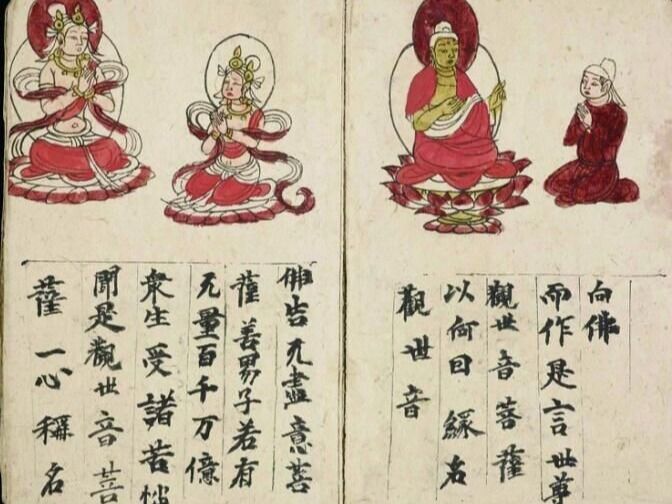 向佛
而作是言世尊
觀世音菩薩
以何因緣名
觀世音
佛告无盡意菩
薩善男子若有
无量百千万億
衆生受諸苦惱
聞是觀世音菩
薩一心稱名